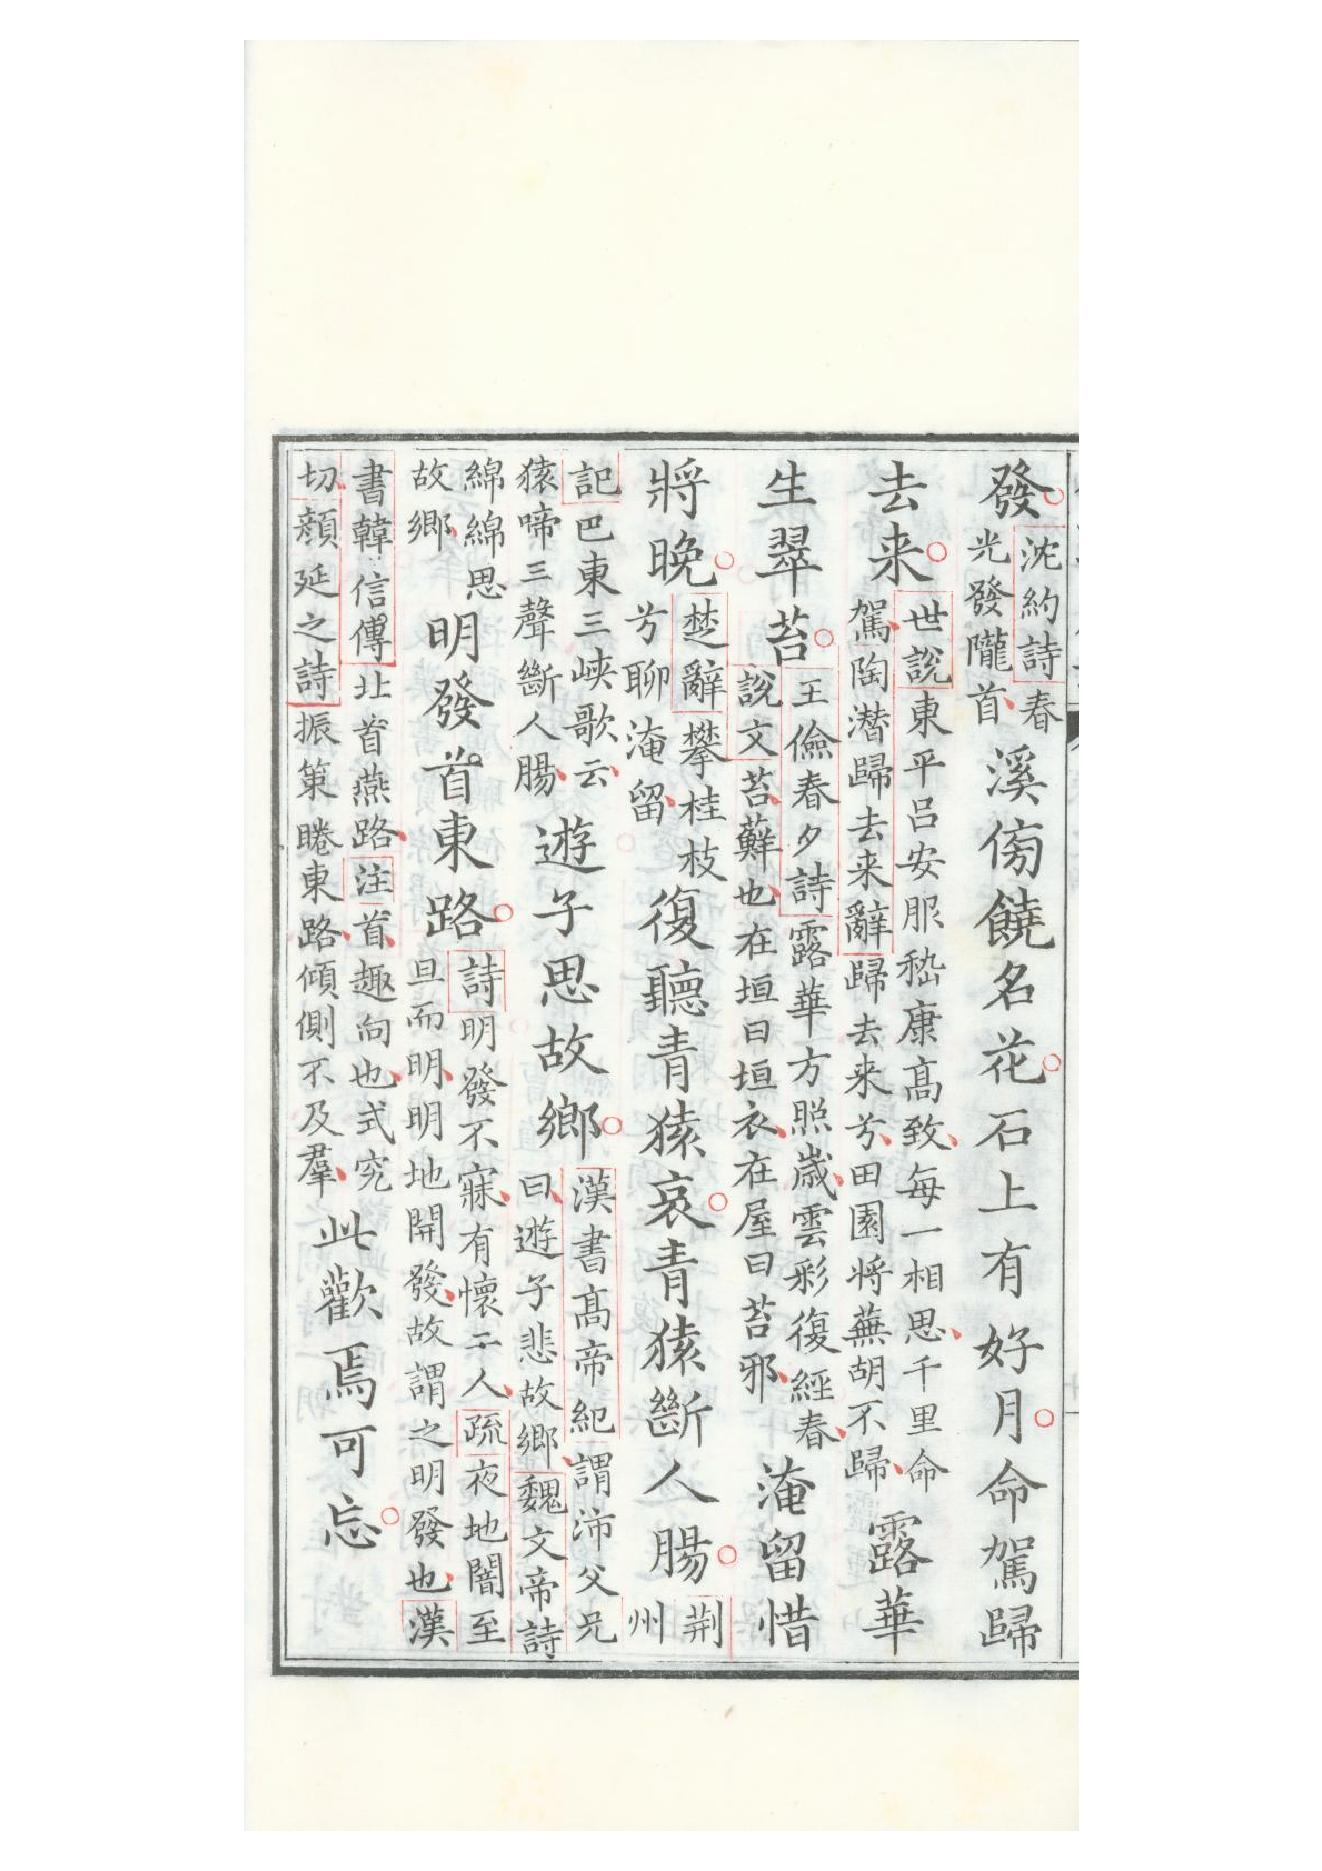 發沈約詩春光發隴首溪傍饒名花石上有好月命駕歸
去来世說東平呂安服嵇康高致每一相思千里命駕陶潛歸去来辭歸去来兮田園将蕪胡不歸露華
生翠苔王儉春夕詩露華方照歲雲彩復經春說文苔蘚也在垣曰垣衣在屋曰苔邪淹留惜
將晚楚辭攀桂枝兮聊淹留復聽青猿哀青猿斷人腸荆州
記巴東三峽歌云猿啼三聲斷人腸遊子思故鄉漢書高帝紀謂沛父兄曰遊子悲故鄉魏文帝詩
綿綿思故鄉明發首東路詩明發不寐有懷二人疏夜地闇至旦而明明地開發故謂之明發也漢
書韓信傳北首燕路注首趣向也式究切顏延之詩振策睠東路傾側不及羣此歡焉可忘